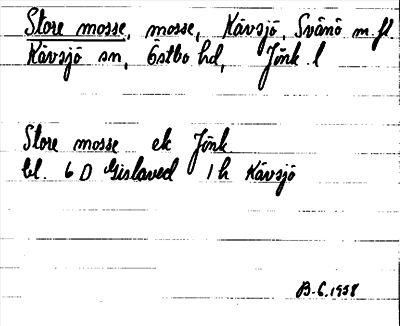 Store mosse, mosse, Kävsjö, Svänö m.fl.
Kävsjö sn, Östbo hd, Jönk. l
Store mosse ek Jönk
bl. 6 D Gislaved 1 h Kävsjö
B.G. 1958